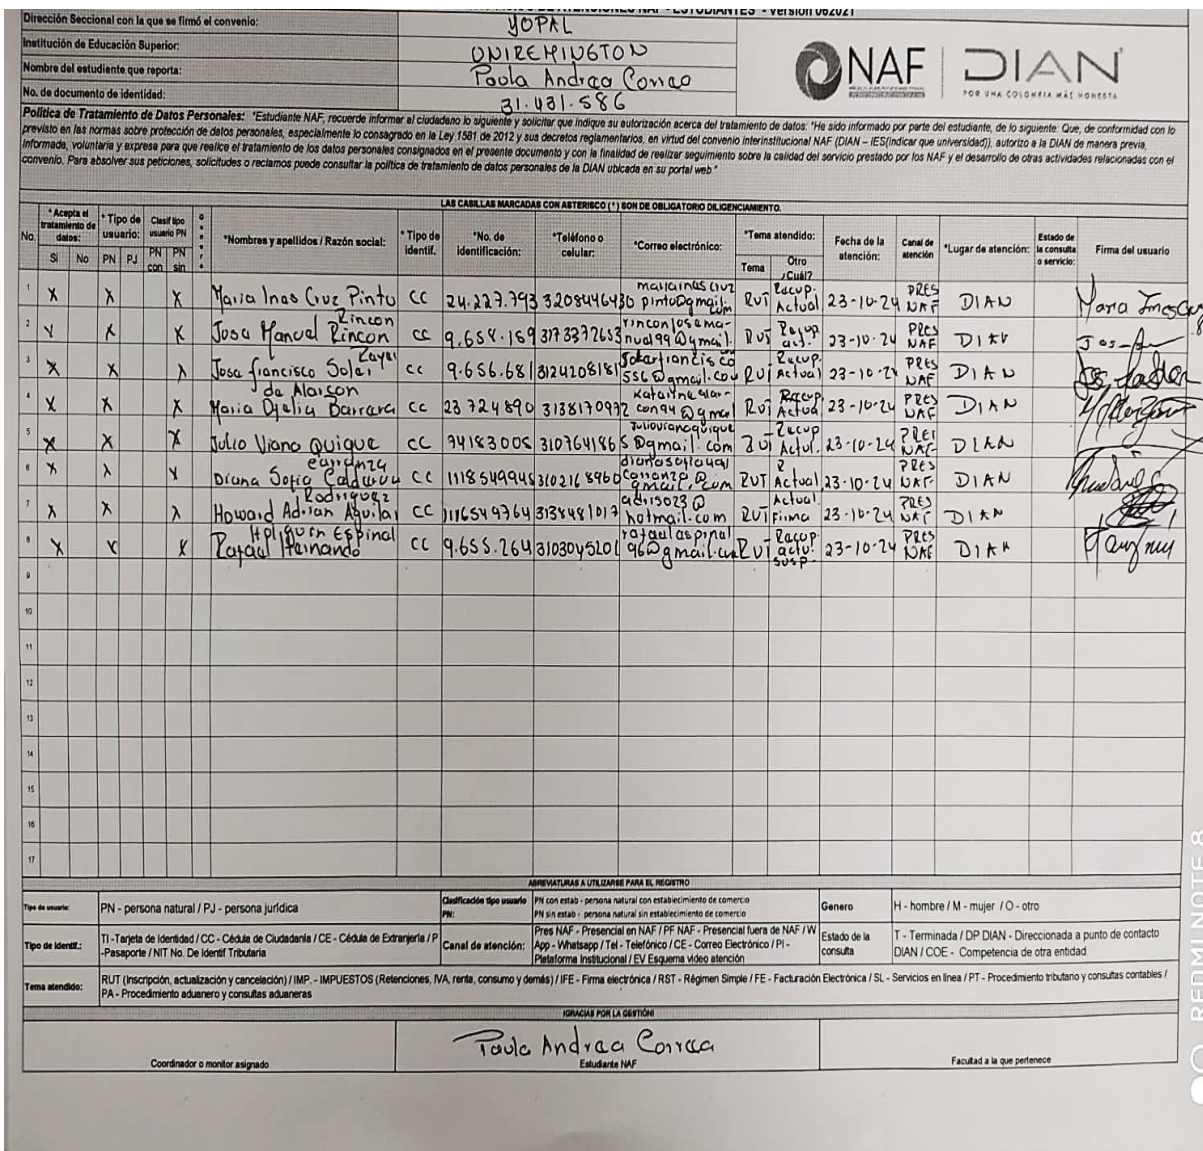 Dirección Seccional con la que se firmó el convenio: YOPAL
Institución de Educación Superior: UNIREMINGTON
Nombre del estudiante que reporta: Paola Andrea Correa
No. de documento de identidad: 31.431.586
NAF DIAN
POR UNA COLOMBIA MÁS HONESTA
Política de Tratamiento de Datos Personales: "Estudiante NAF, recuerde informar al ciudadano lo siguiente y solicitar que indique su autorización acerca del tratamiento de datos: "He sido informado por parte del estudiante, de lo siguiente: Que, de conformidad con lo
previsto en las normas sobre protección de datos personales, especialmente lo consagrado en la Ley 1581 de 2012 y sus decretos reglamentarios, en virtud del convenio interinstitucional NAF (DIAN – IES(Indicar que universidad)), autorizo a la DIAN de manera previa,
informada, voluntaria y expresa para que realice el tratamiento de los datos personales consignados en el presente documento y con la finalidad de realizar seguimiento sobre la calidad del servicio prestado por los NAF y el desarrollo de otras actividades relacionadas con el
convenio. Para absolver sus peticiones, solicitudes o reclamos puede consultar la política de tratamiento de datos personales de la DIAN ubicada en su portal web."
LAS CASILLAS MARCADAS CON ASTERISCO (*) SON DE OBLIGATORIO DILIGENCIAMIENTO.
No. *Acepta el tratamiento de datos: *Tipo de usuario: Clasif tipo usuario PN *Nombres y apellidos / Razón social: *Tipo de Identif. *No. de identificación: *Teléfono o celular: *Correo electrónico: *Tema atendido: Fecha de la atención: Canal de atención *Lugar de atención: Estado de la consulta o servicio: Firma del usuario
Si No PN PJ PN con PN sin Tema Otro ¿Cuál?
1 X X X Maria Ines Cruz Pinto CC 24.227.793 3208446430 mariainescruz pinto@gmail.com RUT Recup. Actual 23-10-24 PRES NAF DIAN Maria Ines Cruz
2 X X X Jose Manuel Rincon Rincon CC 9.658.159 3173372653 rinconjosema-nual99@gmail. RUT Recup. act. 23-10-24 PRES NAF DIAN
3 X X X Jose francisco Soler CC 9.656.681 3124208181 556@gmail.com RUT Recup. Actual 23-10-24 PRES NAF DIAN
4 X X X Maria Barrera de Alarcon CC 23 724 890 3138170972 RUT Recup Actual 23-10-24 PRES NAF DIAN
5 X X X Julio Viano Quique CC 74183005 3107641865 @gmail.com RUT Recup Actual. 23-10-24 PRES NAF DIAN
6 X X X Diana Sofia Carranza CC 1118549945 3102168960 gmail.com RUT R Actual 23-10-24 PRES NAF DIAN
7 X X X Howard Adrian Aguilar Rodriguez CC 1116549764 3138481017 adri5023@hotmail.com RUT Actual. Firma 23-10-24 PRES NAF DIAN
8 X X X Rafael Hernando Holguin Espinal CC 9.655.264 3103045201 rafaelespinal 96@gmail.com RUT Recup actu. susp. 23-10-24 PRES NAF DIAN
9
10
11
12
13
14
15
16
17
ABREVIATURAS A UTILIZARSE PARA EL REGISTRO
Tipo de usuario: PN - persona natural / PJ - persona jurídica Clasificación tipo usuario PN: PN con estab - persona natural con establecimiento de comercio
PN sin estab - persona natural sin establecimiento de comercio Genero H - hombre / M - mujer / O - otro
Tipo de Identif.: TI -Tarjeta de Identidad / CC - Cédula de Ciudadania / CE - Cédula de Extranjería / P -Pasaporte / NIT No. De Identif Tributaria Canal de atención: Pres NAF - Presencial en NAF / PF NAF - Presencial fuera de NAF / W App - Whatsapp / Tel - Telefónico / CE - Correo Electrónico / PI - Plataforma Institucional / EV Esquema video atención Estado de la consulta T - Terminada / DP DIAN - Direccionada a punto de contacto DIAN / COE - Competencia de otra entidad
Tema atendido: RUT (Inscripción, actualización y cancelación) / IMP. - IMPUESTOS (Retenciones, IVA, renta, consumo y demás) / IFE - Firma electrónica / RST - Régimen Simple / FE - Facturación Electrónica / SL - Servicios en línea / PT - Procedimiento tributario y consultas contables /
PA - Procedimiento aduanero y consultas aduaneras
¡GRACIAS POR LA GESTIÓN!
Paola Andrea Correa
Coordinador o monitor asignado Estudiante NAF Facultad a la que pertenece
REDMI NOTE 8